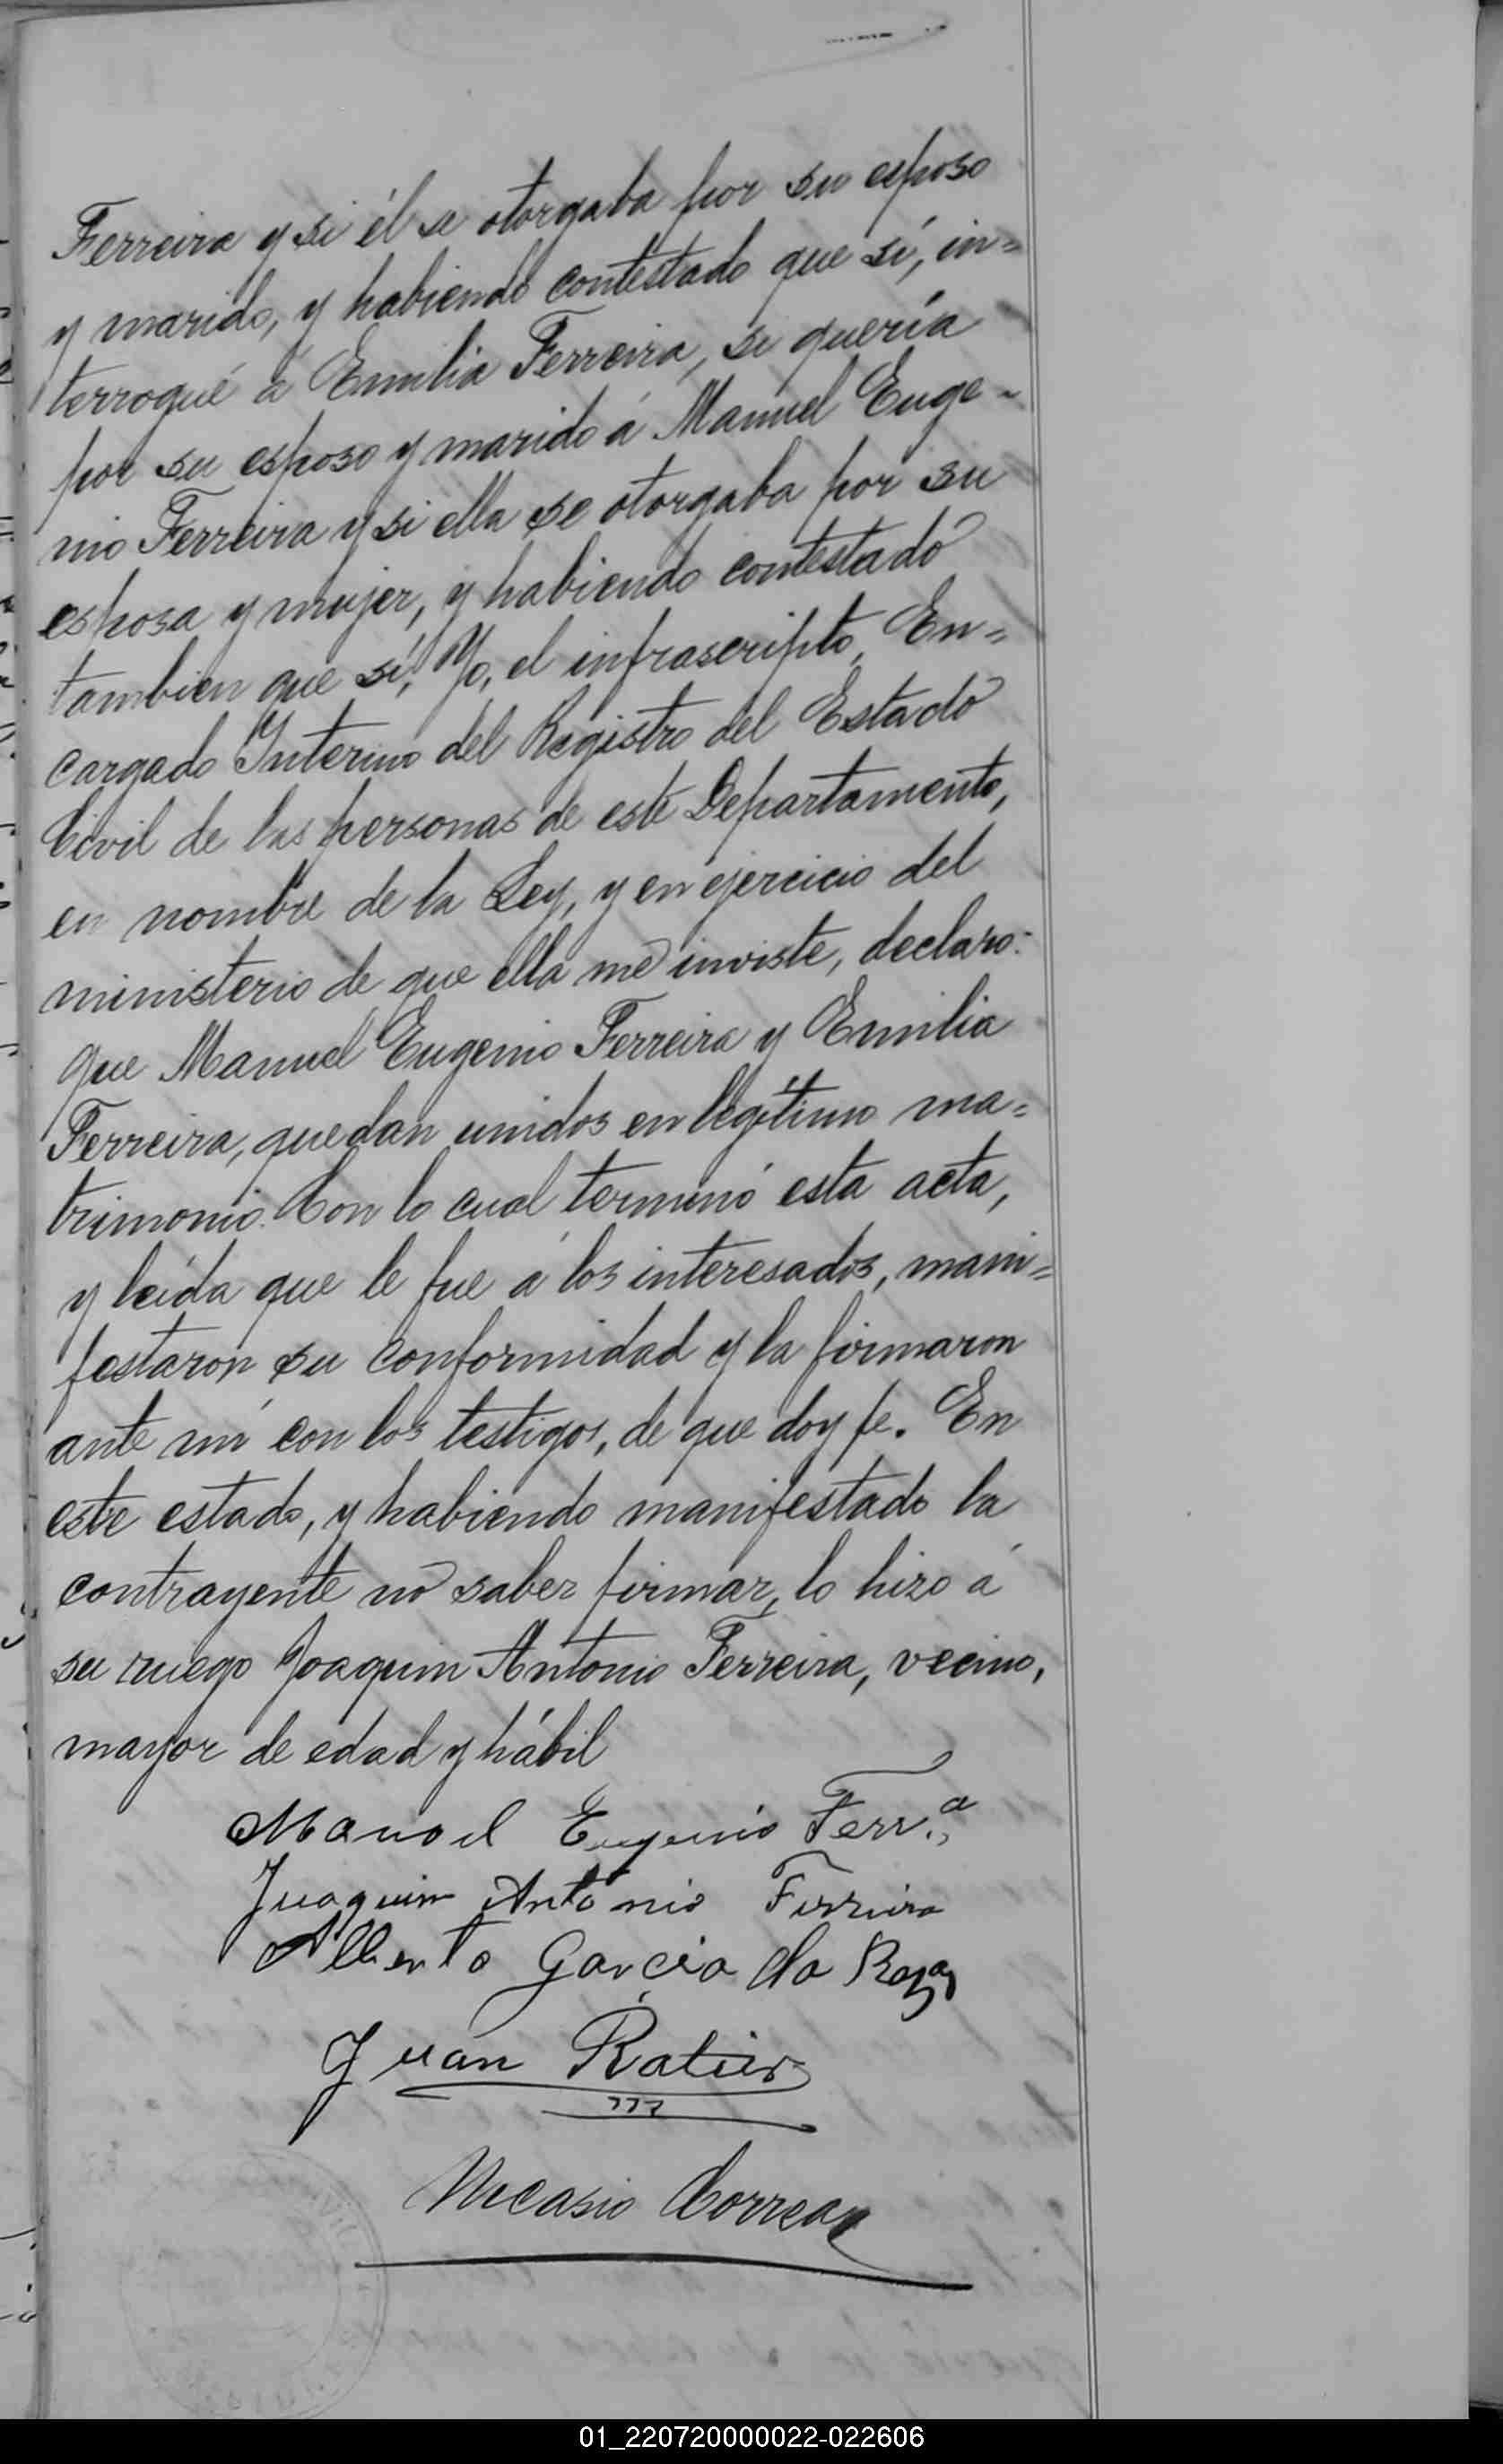 Ferreira y si él se otorgaba por su esposo
y marido, y habiendo contestado que sí, in=
terrogué á Emilia Ferreira, si quería
por su esposo y marido á Manuel Euge-
nio Ferreira y si ella se otorgaba por su
esposa y mujer, y habiendo contestado
tambien que sí, Yo, el infrascripto, En=
cargado Interino del Registro del Estado
Civil de las personas de este Departamento,
en nombre de la Ley, y en ejercicio del
ministerio de que ella me inviste, declaro:
que Manuel Eugenio Ferreira y Emilia
Ferreira, quedan unidos en legítimo ma=
trimonio. Con lo cual terminó esta acta,
y leída que le fue á los interesados, mani=
festaron su conformidad y la firmaron
ante mí con los testigos, de que doy fe. En
este estado, y habiendo manifestado la
contrayente no saber firmar, lo hizo á
su ruego Joaquin Antonio Ferreira, vecino,
mayor de edad y hábil
Manoel Eugenio Ferr.ª
Juaquim Antonio Ferreira
Alberto Garcia da Roza
Juan Ratier
Nicasio Correa
01_220720000022-022606